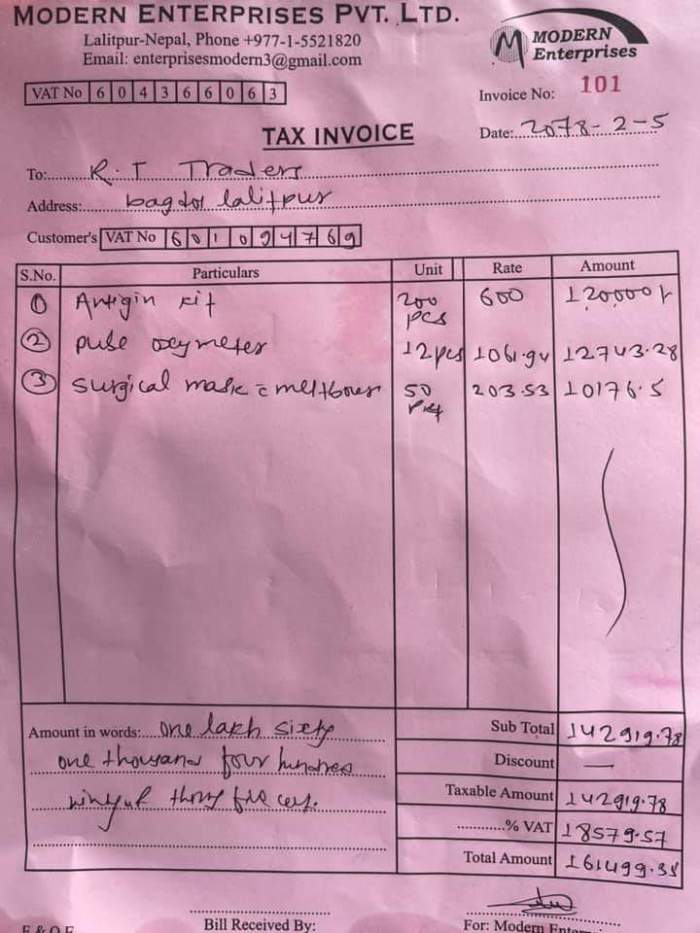 MODERN ENTERPRISES PVT. LTD.
Lalitpur-Nepal, Phone +977-1-5521820
Email: enterprisesmodern3@gmail.com
MODERN
Enterprises
VAT No 6 0 4 3 6 6 0 6 3
Invoice No: 101
TAX INVOICE
Date: 2078-2-5
To: R.T Traders
Address: bagdol lalitpur
Customer's VAT No 6 0 1 0 9 4 7 6 9
S.No. Particulars Unit Rate Amount
1 Antigin kit 200 pcs 600 120000/-
2 pulse oxymeter 12 pcs 1061.94 12743.28
3 surgical mask 50 203.53 10176.5
Amount in words: one lakh sixty
one thousand four hundred
Sub Total 142919.78
Discount —
Taxable Amount 142919.78
% VAT 18579.57
Total Amount 161499.35
Bill Received By:
For: Modern
E & O.E